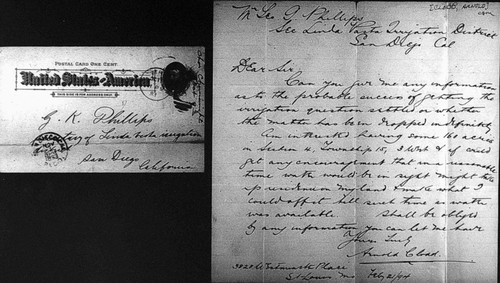 POSTAL CARD ONE CENT.
United States of America
THIS SIDE IS FOR ADDRESS ONLY.
G. K. Phillips
Sec of Linda Vista irrigation
San Diego
California
Mr Geo G. Phillips
Sec Linda Vista Irrigation District
San Diego Cal
Dear Sir.
Can you give me any information
as to the probable success of getting the
irrigation question settled or whether
the matter has been dropped indefinitely
Am interested having some 160 acres
in Section 4, Township 15, 3 West & if could
get any encouragement that in a reasonable
time water would be in sight might take
up residence on my land & make what I
could off it till such time as water
was available Shall be obliged
by any information you can let me have
Yours truly
Arnold
St Louis Mo Feby 21/94